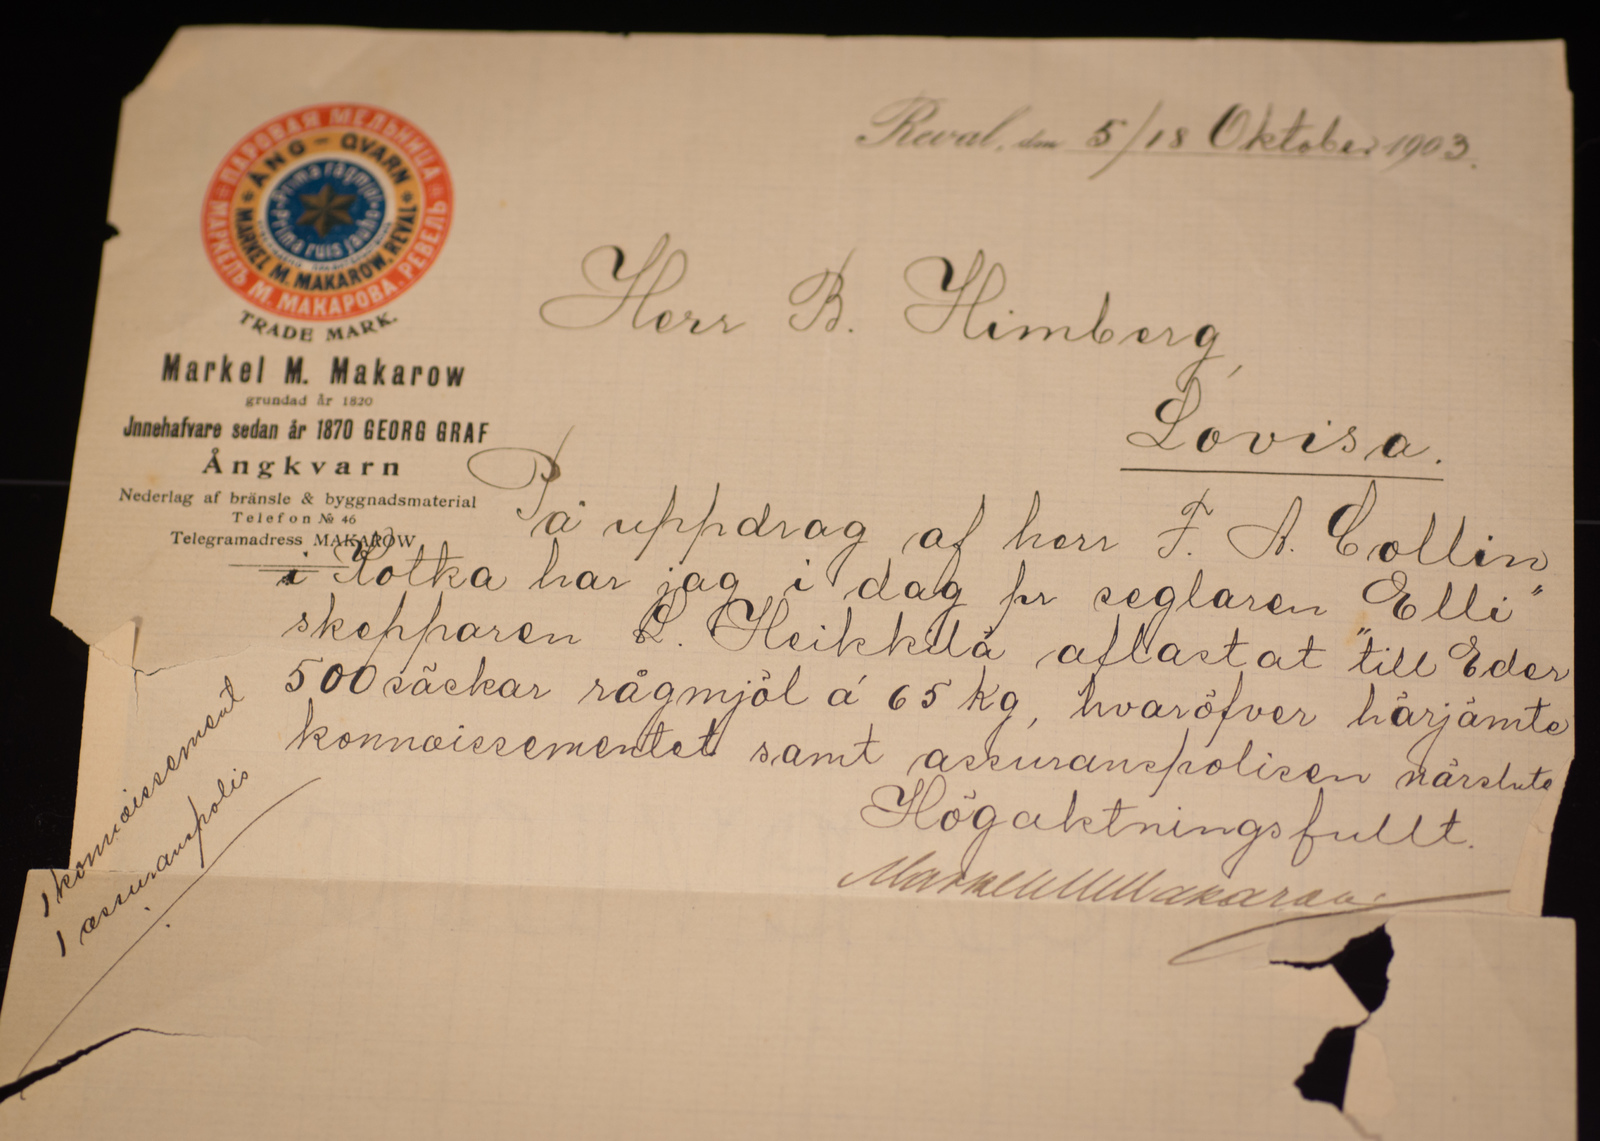 ПАРОВАЯ МЕЛЬНИЦА
МАРКЕЛЬ М. МАКАРОВА. РЕВЕЛЬ
ÅNG-QVARN
MARKEL M. MAKAROW, REVAL
prima rågmjöl
prima ruis jauho
TRADE MARK.
Markel M. Makarow
grundad år 1820
Jnnehafvare sedan år 1870 GEORG GRAF
Ångkvarn
Nederlag af bränsle & byggnadsmaterial
Telefon № 46
Telegramadress MAKAROW
Reval, den 5/18 Oktober 1903.
Herr B. Himberg,
Lovisa.
På uppdrag af herr F. A. Collin
i Kotka har jag i dag pr seglaren „Elli"
skepparen L. Heikkilä aflastat till Eder
500 säckar rågmjöl á 65 kg, hvaröfver härjämte
konnoissementet samt assuranspolisen närslute
Högaktningsfullt.
Markel M Makarow
1 konnoissement
1 assuranspolis